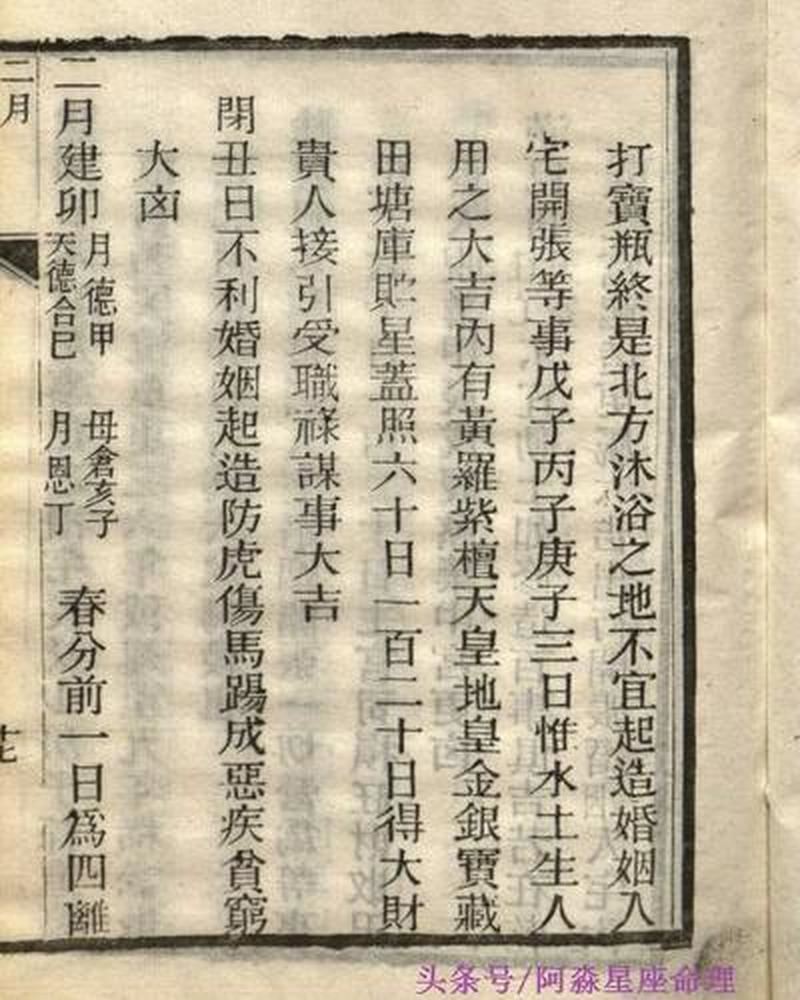 打寶瓶終是北方沐浴之地不宜起造婚姻入
宅開張等事戊子丙子庚子三日惟水土生人
用之大吉內有黃羅紫檀天皇地皇金銀寶藏
田塘庫貯星蓋照六十日一百二十日得大財
貴人接引受職祿謀事大吉
閉丑日不利婚姻起造防虎傷馬踢成惡疾貧窮
大凶
二月建卯 月德甲 天德合巳 母倉亥子 月恩丁 春分前一日為四離
二月
头条号/阿淼星座命理